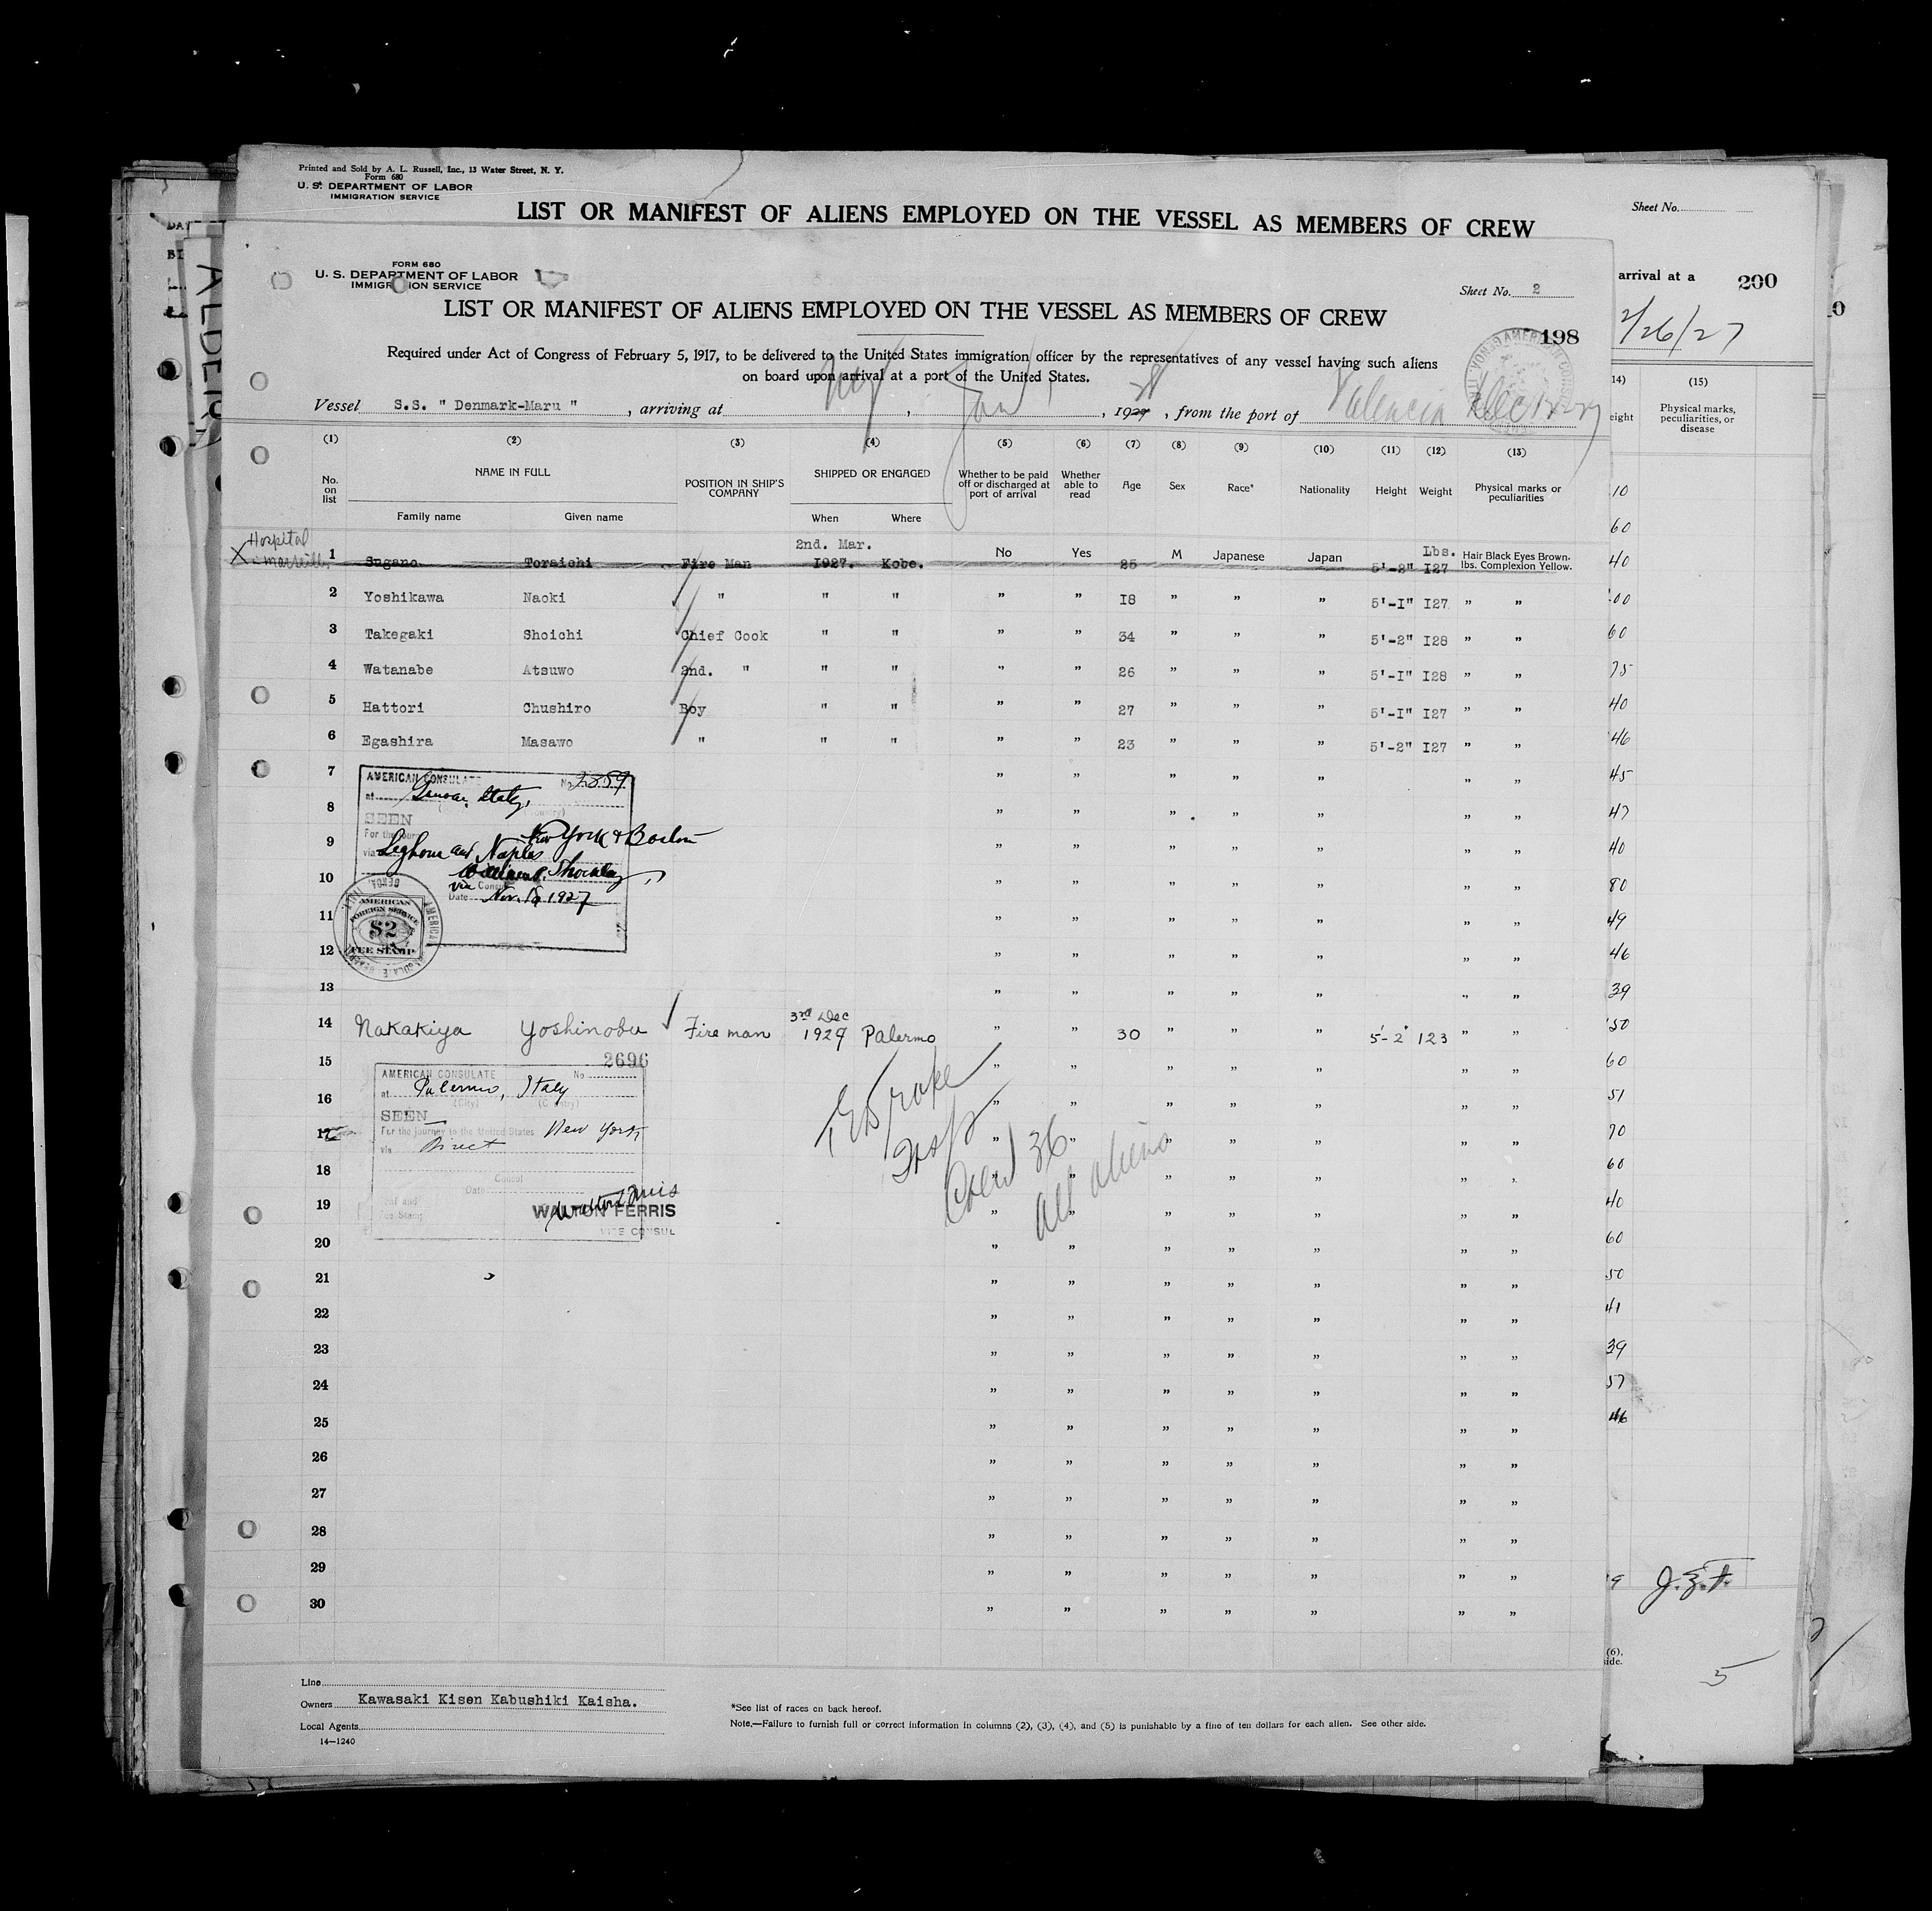 Printed and Sold by A. L. Russell, Inc., 13 Water Street, N. Y.
Form 680
U. S. DEPARTMENT OF LABOR
IMMIGRATION SERVICE
LIST OR MANIFEST OF ALIENS EMPLOYED ON THE VESSEL AS MEMBERS OF CREW
Sheet No.
arrival at a 200
2/26/27
(14) (15)
Physical marks, peculiarities, or disease
ALDERN
FORM 680
U. S. DEPARTMENT OF LABOR
IMMIGRATION SERVICE
Sheet No. 2
LIST OR MANIFEST OF ALIENS EMPLOYED ON THE VESSEL AS MEMBERS OF CREW
198
Required under Act of Congress of February 5, 1917, to be delivered to the United States immigration officer by the representatives of any vessel having such aliens
on board upon arrival at a port of the United States.
Vessel S.S. " Denmark-Maru " , arriving at NY , Jan 1 , 1927 28 , from the port of Valencia Dec
(1) (2) (3) (4) (5) (6) (7) (8) (9) (10) (11) (12) (13)
No. on list NAME IN FULL POSITION IN SHIP'S COMPANY SHIPPED OR ENGAGED Whether to be paid off or discharged at port of arrival Whether able to read Age Sex Race* Nationality Height Weight Physical marks or peculiarities
Family name Given name When Where
Hospital
X Marseille
1 Sugano Toraichi Fire Man 2nd. Mar. 1927. Kobe. No Yes 25 M Japanese Japan 5'-2" Lbs. I27 Hair Black Eyes Brown. lbs. Complexion Yellow.
2 Yoshikawa Naoki " " " " " I8 " " " 5'-I" I27 " "
3 Takegaki Shoichi Chief Cook " " " " 34 " " " 5'-2" I28 " "
4 Watanabe Atsuwo 2nd. " " " " " 26 " " " 5'-I" I28 " "
5 Hattori Chushiro Boy " " " " 27 " " " 5'-I" I27 " "
6 Egashira Masawo " " " " " 23 " " " 5'-2" I27 " "
7 " " " " " " "
AMERICAN CONSULATE No 2859
at Genoa, Italy,
8 " " " " " " "
SEEN
For the jour New York & Boston
9 " " " " " " "
via Leghorn and Naples
10 " " " " " " "
via Consul
Date Nov. 18, 1927
11 " " " " " " "
AMERICAN FOREIGN SERVICE
$2
FEE STAMP
12 " " " " " " "
13 " " " " " " "
14 Nakakiya Yoshinobu Fireman 3rd Dec 1927 Palermo " " 30 " " " 5'-2" 123 " "
15 " " " " " " "
2696
AMERICAN CONSULATE No
at Palermo, Italy
(City) (Country)
16 " " " " " " "
SEEN
For the journey to the United States New York
17 " " " " " " "
via Direct
18 " " " " " " "
Consul
Date
19 " " " " " " "
Fee Stamp
WALTON FERRIS
VICE CONSUL
Insp
Crew 36
all aliens
20 " " " " " " "
21 " " " " " " "
22 " " " " " " "
23 " " " " " " "
24 " " " " " " "
25 " " " " " " "
26 " " " " " " "
27 " " " " " " "
28 " " " " " " "
29 " " " " " " "
30 " " " " " " "
J.Z.F.
5
Line
Owners Kawasaki Kisen Kabushiki Kaisha.
Local Agents
14—1240
*See list of races on back hereof.
Note.—Failure to furnish full or correct information in columns (2), (3), (4), and (5) is punishable by a fine of ten dollars for each alien. See other side.